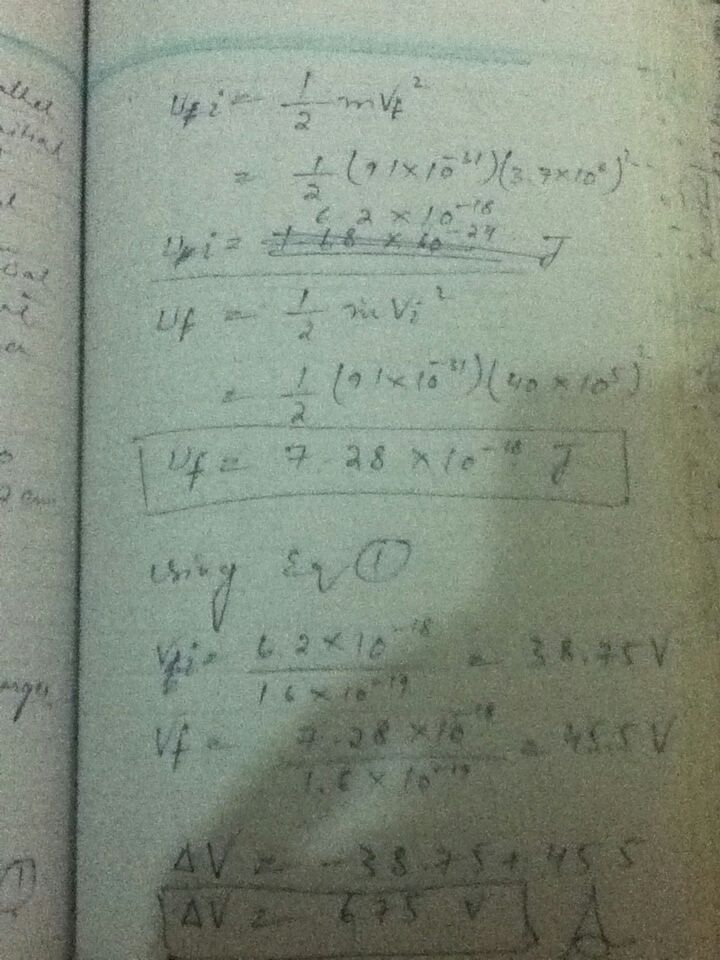 Ui = 1/2 mVf²
= 1/2 (9.1×10⁻³¹)(3.7×10⁶)²
6.2 × 10⁻¹⁸
Ui = 1.68 × 10⁻²⁴ J
Uf = 1/2 mVi²
= 1/2 (9.1×10⁻³¹)(40×10⁵)²
Uf = 7.28 ×10⁻¹⁸ J
using Eq ①
Vi = 6.2×10⁻¹⁸ / 1.6×10⁻¹⁹ = 38.75 V
Vf = 7.28 ×10⁻¹⁸ / 1.6×10⁻¹⁹ = 45.5 V
ΔV = -38.75 + 45.5
ΔV = 6.75 V